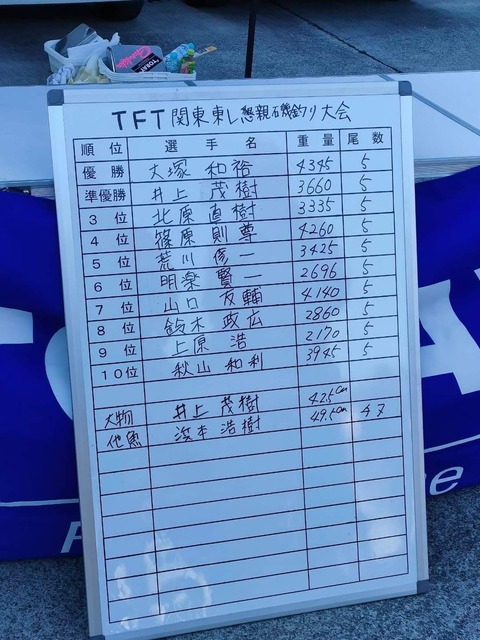 TFT関東東レ懇親磯釣り大会
順位 選手名 重量 尾数
優勝 大塚 和裕 4345 5
準優勝 井上 茂樹 3660 5
3位 北原 直樹 3335 5
4位 篠原 則尊 4260 5
5位 荒川 修一 3425 5
6位 明楽 賢一 2696 5
7位 山口 友輔 4140 5
8位 鈴木 政広 2860 5
9位 上原 浩 2170 5
10位 秋山 和利 3945 5
大物 井上 茂樹 42.5cm
他魚 浜本 浩樹 49.5cm